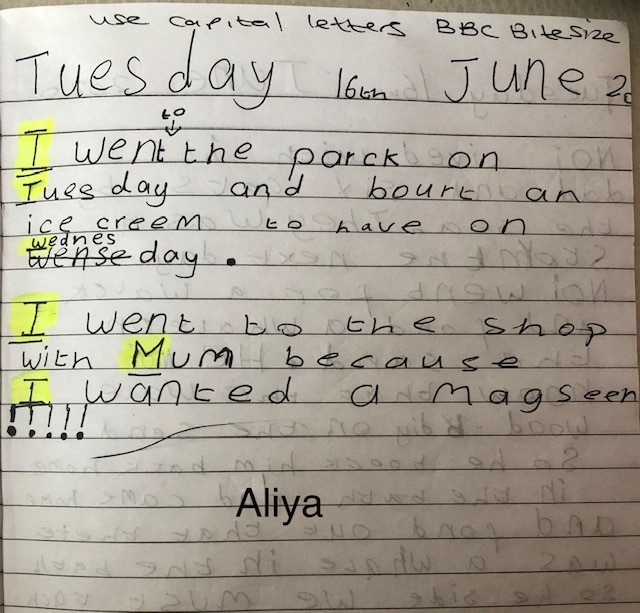 use capital letters BBC Bitesize
Tuesday 16th June 20
to
I went the parck on
Tuesday and bourt an
ice creem to have on
wednes
wense day.
I went to the shop
with Mum because
I wanted a magseen
!!!!!
Aliya